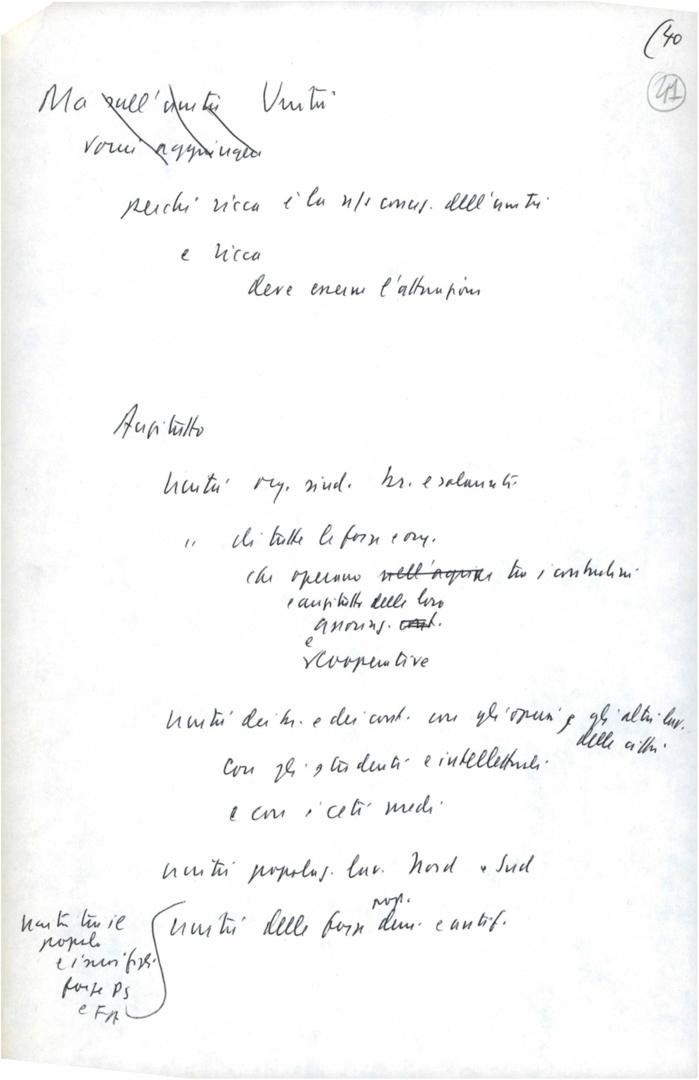 (40
41
Ma sull'unità Unità
vorrei aggiungere
perché ricca è la n/s conces. dell'unità
e ricca
deve esserne l'attuazione
Anzitutto
Unità org. sind. br. e salariati
" di tutte le forze e org.
che operano tra i contadini
e anzitutto delle loro
associaz.
e
cooperative
unità dei br. e dei cont. con gli operai e gli altri lav.
delle città
con gli studenti e intellettuali
e con i ceti medi
unità popolaz. lav. Nord e Sud
pop.
unità delle forze dem. e antif.
unità tra il
popolo
e i suoi figli
forze PS
e FA